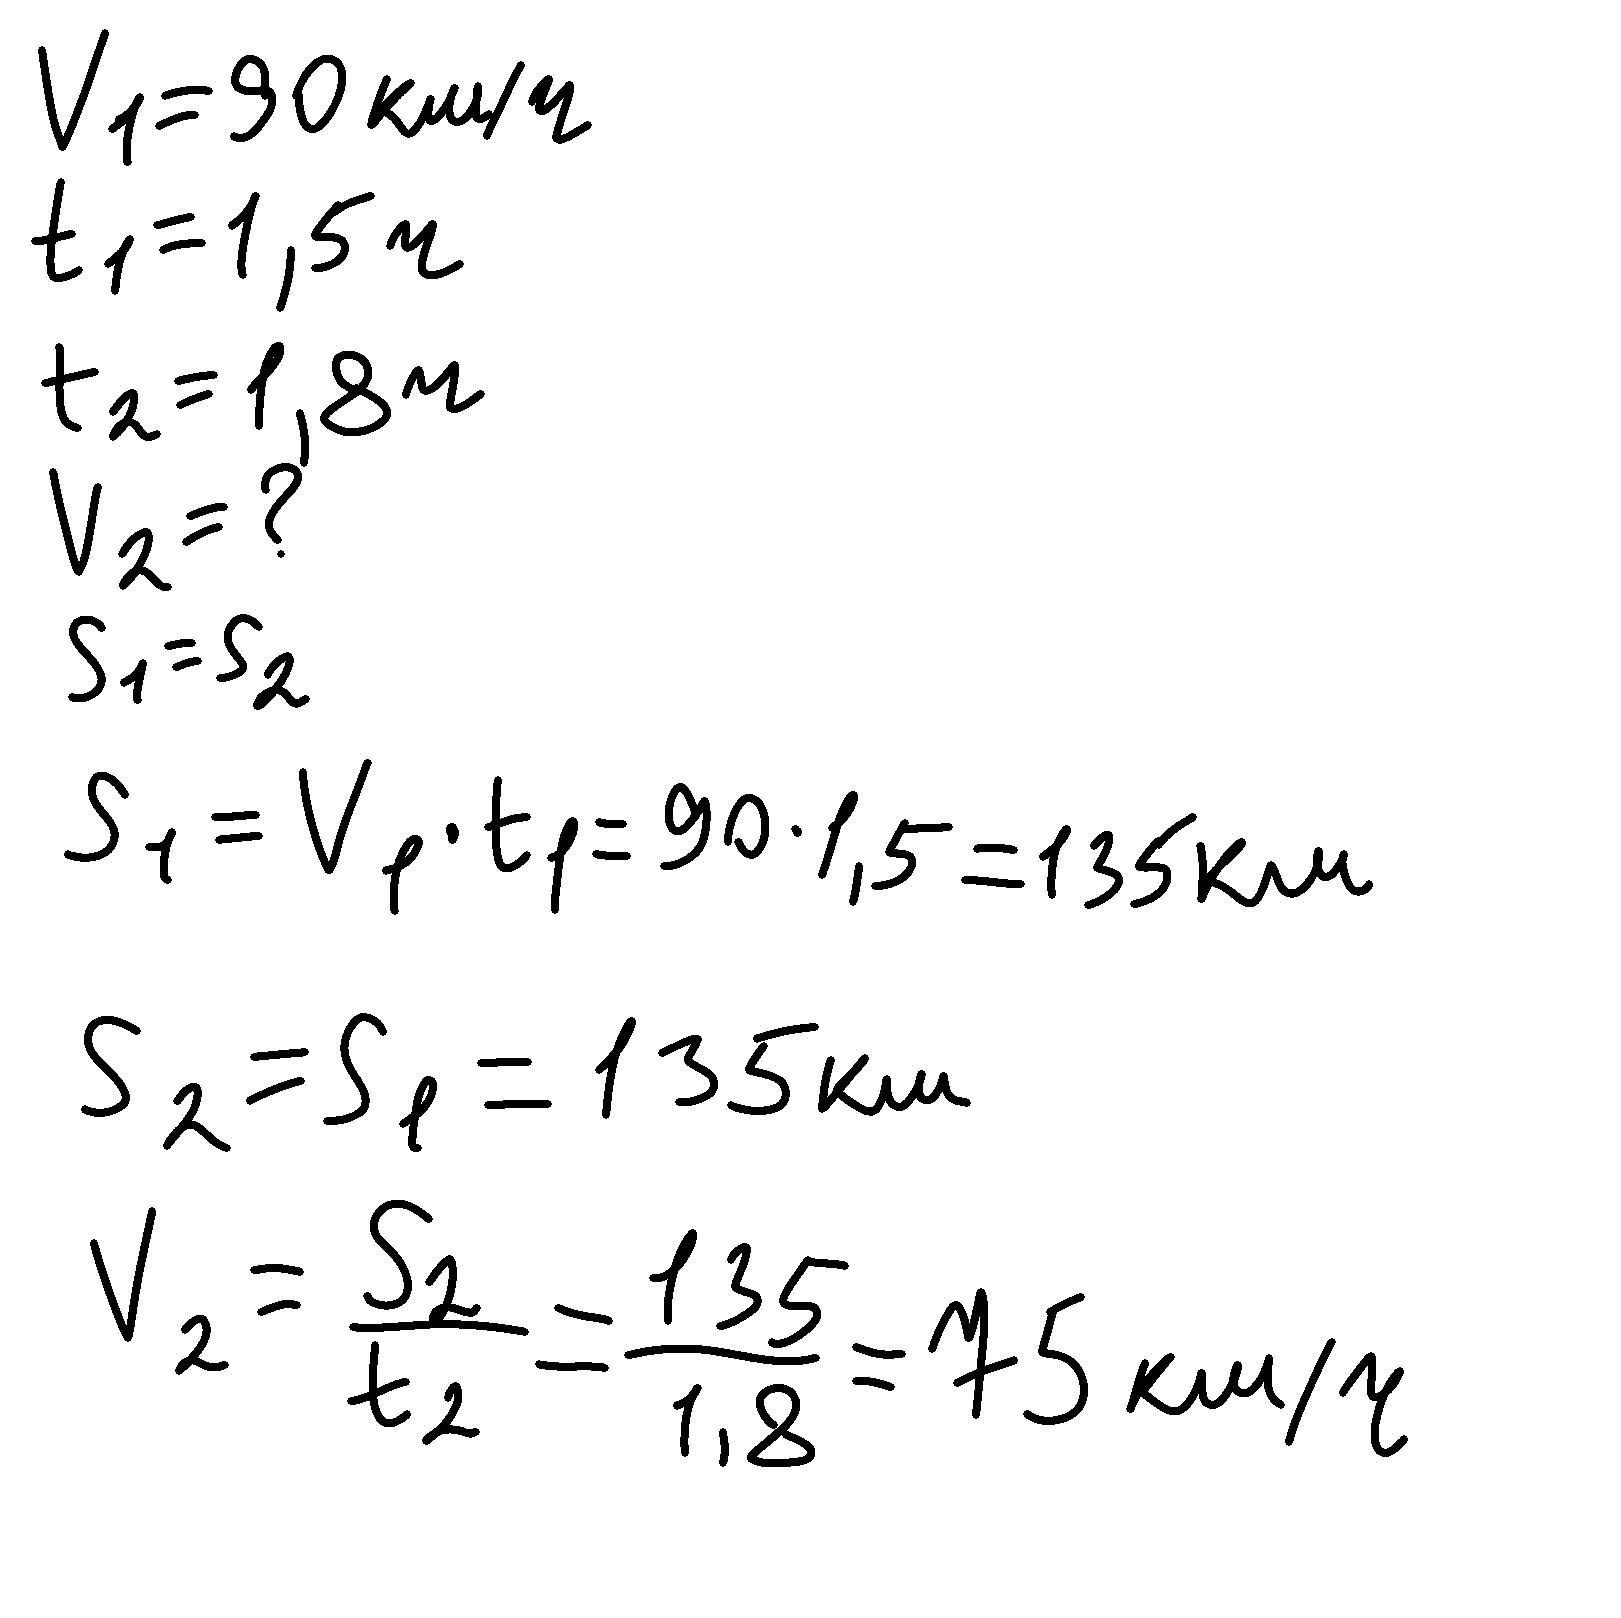 V₁=90км/ч
t₁=1,5ч
t₂=1,8ч
V₂=?
S₁=S₂
S₁=V₁·t₁=90·1,5=135км
S₂=S₁=135км
V₂=S₂/t₂=135/1,8=75км/ч